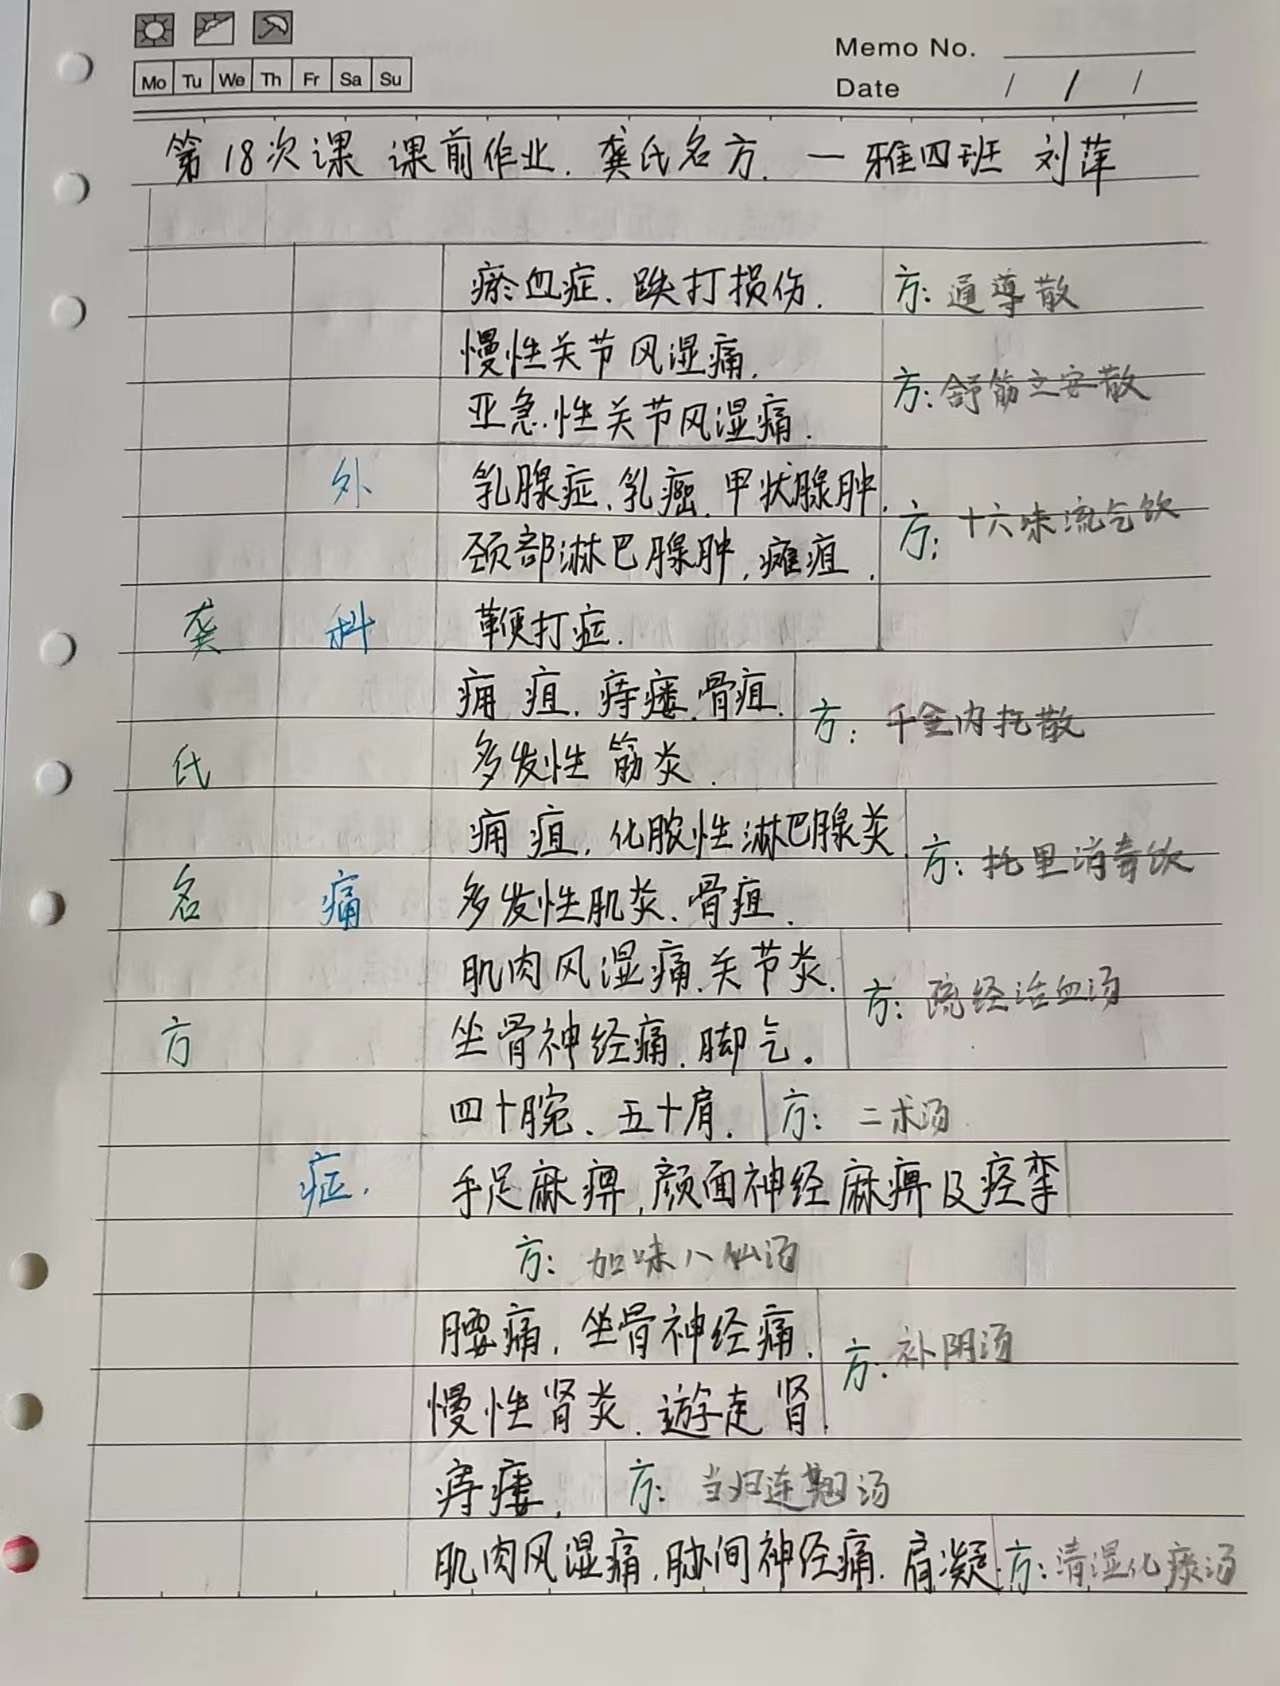 Memo No.
Mo Tu We Th Fr Sa Su
Date / / /
第18次课 课前作业. 龚氏名方. — 雅四班 刘萍
龚氏名方
外科痛症.
瘀血症. 跌打损伤. 方: 通导散
慢性关节风湿痛.
亚急性关节风湿痛. 方: 舒筋立安散
乳腺症、乳癌. 甲状腺肿.
颈部淋巴腺肿, 瘫疽. 方: 十六味流气饮
鞭打症.
痈疽. 痔瘘. 骨疽.
多发性筋炎. 方: 千金内托散
痈疽. 化脓性淋巴腺炎
多发性肌炎、骨疽. 方: 托里消毒饮
肌肉风湿痛. 关节炎.
坐骨神经痛. 脚气. 方: 疏经活血汤
四十腕、五十肩. 方: 二术汤
手足麻痹, 颜面神经麻痹及痉挛
方: 加味八仙汤
腰痛, 坐骨神经痛.
慢性肾炎. 遊走肾. 方: 补阴汤
痔瘘. 方: 当归连翘汤
肌肉风湿痛. 胁间神经痛. 肩凝. 方: 清湿化痰汤